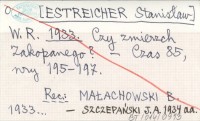 [ESTREICHER Stanisław]
W. R. 1933. Czy zmierzch
Zakopanego? — Czas 85,
nry 195-197.
Rec: MAŁACHOWSKI B.
1933... — SZCZEPAŃSKI J. A. 1934